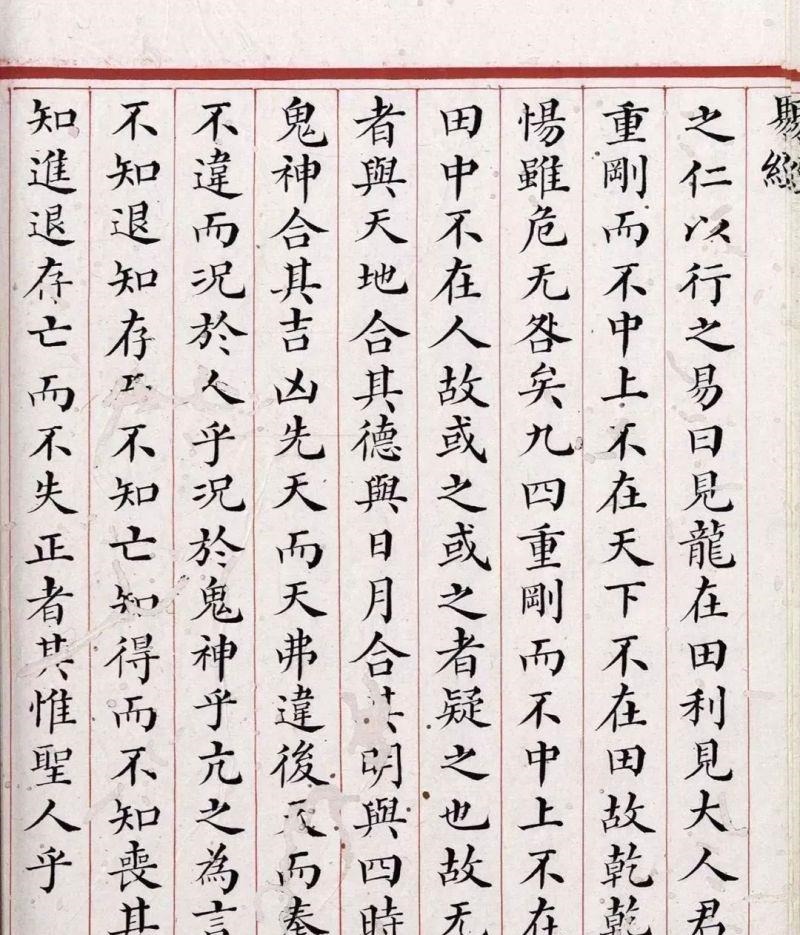 之仁以行之易曰見龍在田利見大人君
重剛而不中上不在天下不在田故乾乾
惕雖危无咎矣九四重剛而不中上不在
田中不在人故或之或之者疑之也故无
者與天地合其德與日月合其明與四時
鬼神合其吉凶先天而天弗違後天而奉
不違而况於人乎况於鬼神乎亢之為言
不知退知存而不知亡知得而不知喪其
知進退存亡而不失正者其惟聖人乎